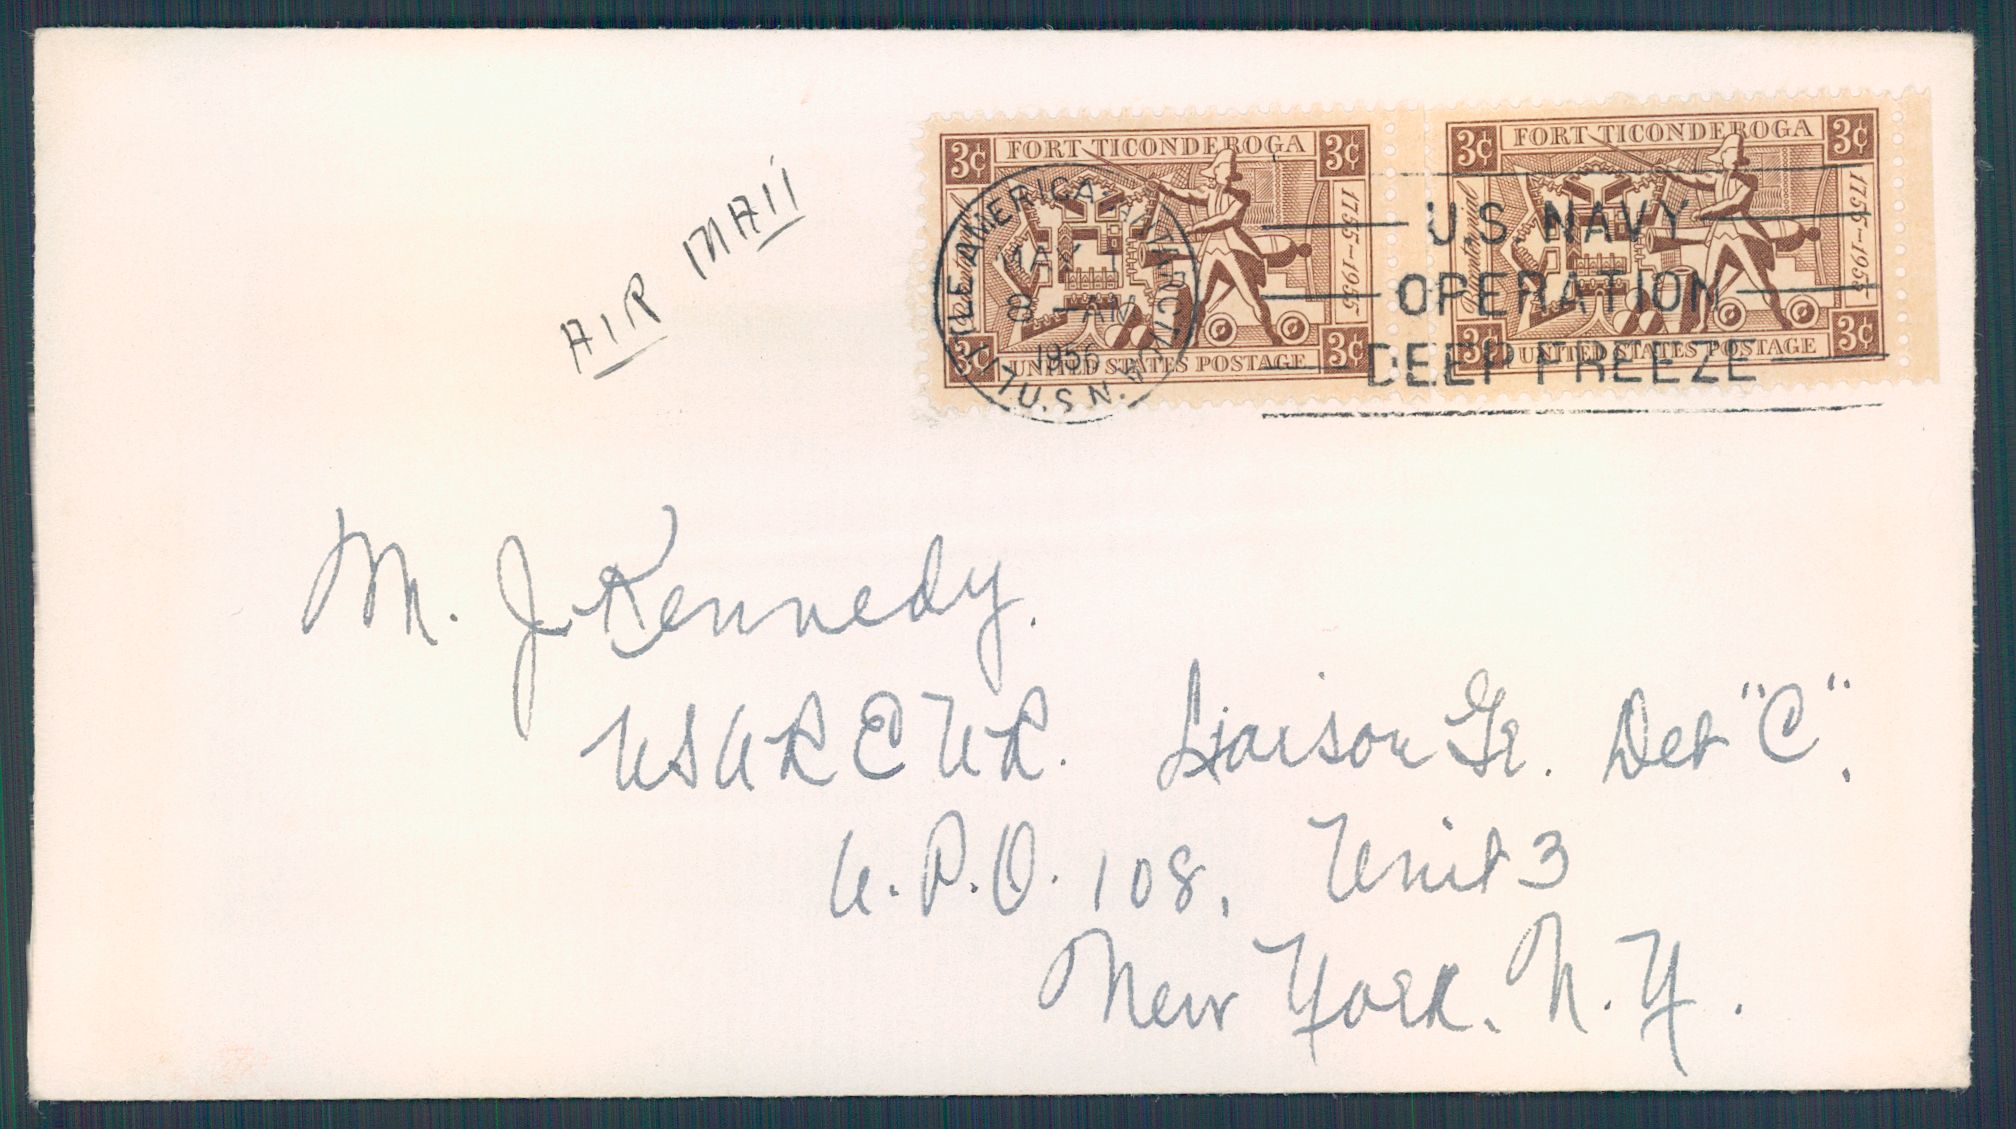 3¢ FORT TICONDEROGA 3¢
Bicentennial
1755-1955
3¢ UNITED STATES POSTAGE 3¢
3¢ FORT TICONDEROGA 3¢
Bicentennial
1755-1955
3¢ UNITED STATES POSTAGE 3¢
LITTLE AMERICA ANTARCTICA
MAY 1
8 - AM
1956
U.S.N.
U.S. NAVY
OPERATION
DEEP FREEZE
AIR MAIl
M. J. Kennedy.
USAREUR. Liaison Gr. Det "C".
A.P.O. 108, Unit 3
New York. N.Y.